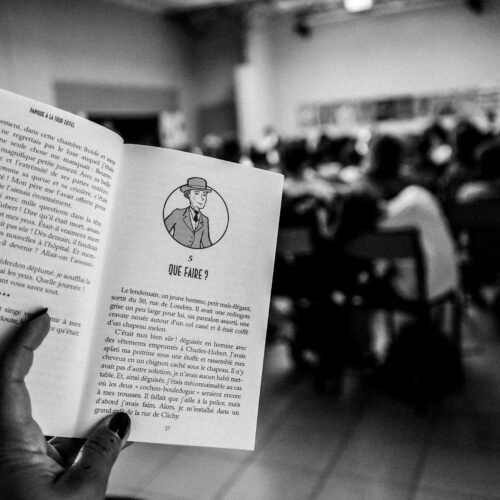 PANIQUE À LA TOUR EIFFEL
dans cette chambre froide, et
ne regrettais pas le luxe auquel
seule chose me manquait :
magnifique petite jument. Avec sa belle
et l'extrémité de ses pattes
sa queue et sa crinière, c'était
Mon père me l'avait offerte pour
l'aimais énormément.
avec mille questions dans la tête,
! Dire qu'il était mort,
mes yeux. Était-il vraiment
sûr ! Dès demain, il faudrait
nouvelles à l'hôpital. Et mon
devenir ? Allait-on
déplumé, je soufflai la
les yeux. Quelle journée !
savez tout.
***
singe
à mes
qu'était
5
QUE FAIRE ?
Le lendemain, un jeune homme, petit mais élégant,
sortit du 50, rue de Londres. Il avait une redingote
grise un peu large pour lui, un pantalon assorti, une
cravate nouée autour d'un col cassé et il était coiffé
d'un chapeau melon.
C'était moi bien sûr ! déguisée en homme avec
des vêtements empruntés à Charles-Hubert. J'avais
aplati ma poitrine sous une étoffe et rassemblé mes
cheveux en un chignon caché sous le chapeau. Il n'y
avait pas d'autre solution, je n'avais aucun habit met-
table. Et, ainsi déguisée, j'étais méconnaissable au cas
où les deux « cochon-bouledogue » seraient encore
à mes trousses. Il fallait que j'aille à la police, mais
d'abord j'avais faim. Alors, je m'installai dans un
grand café de la rue de Clichy.
27